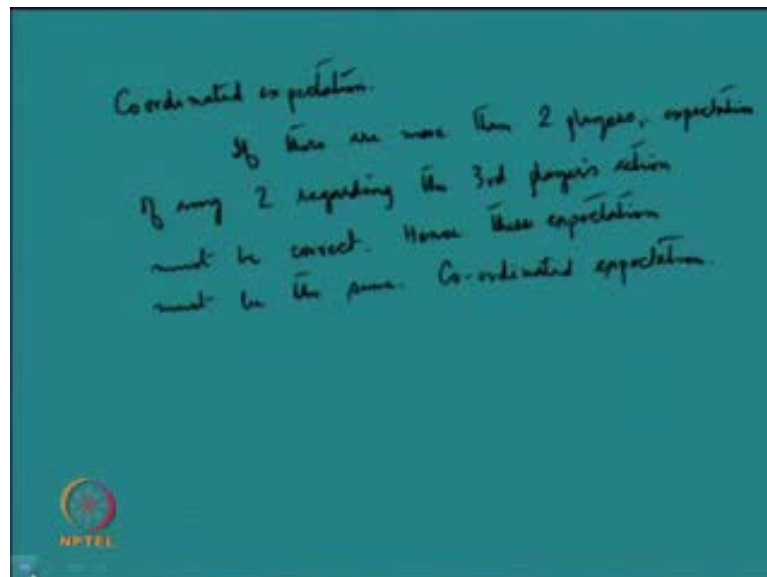 Coordinated expectation.
If there are more than 2 players, expectation
of any 2 regarding the 3rd player's action
must be correct. Hence these expectation
must be the same. Co-ordinated expectation.
NPTEL